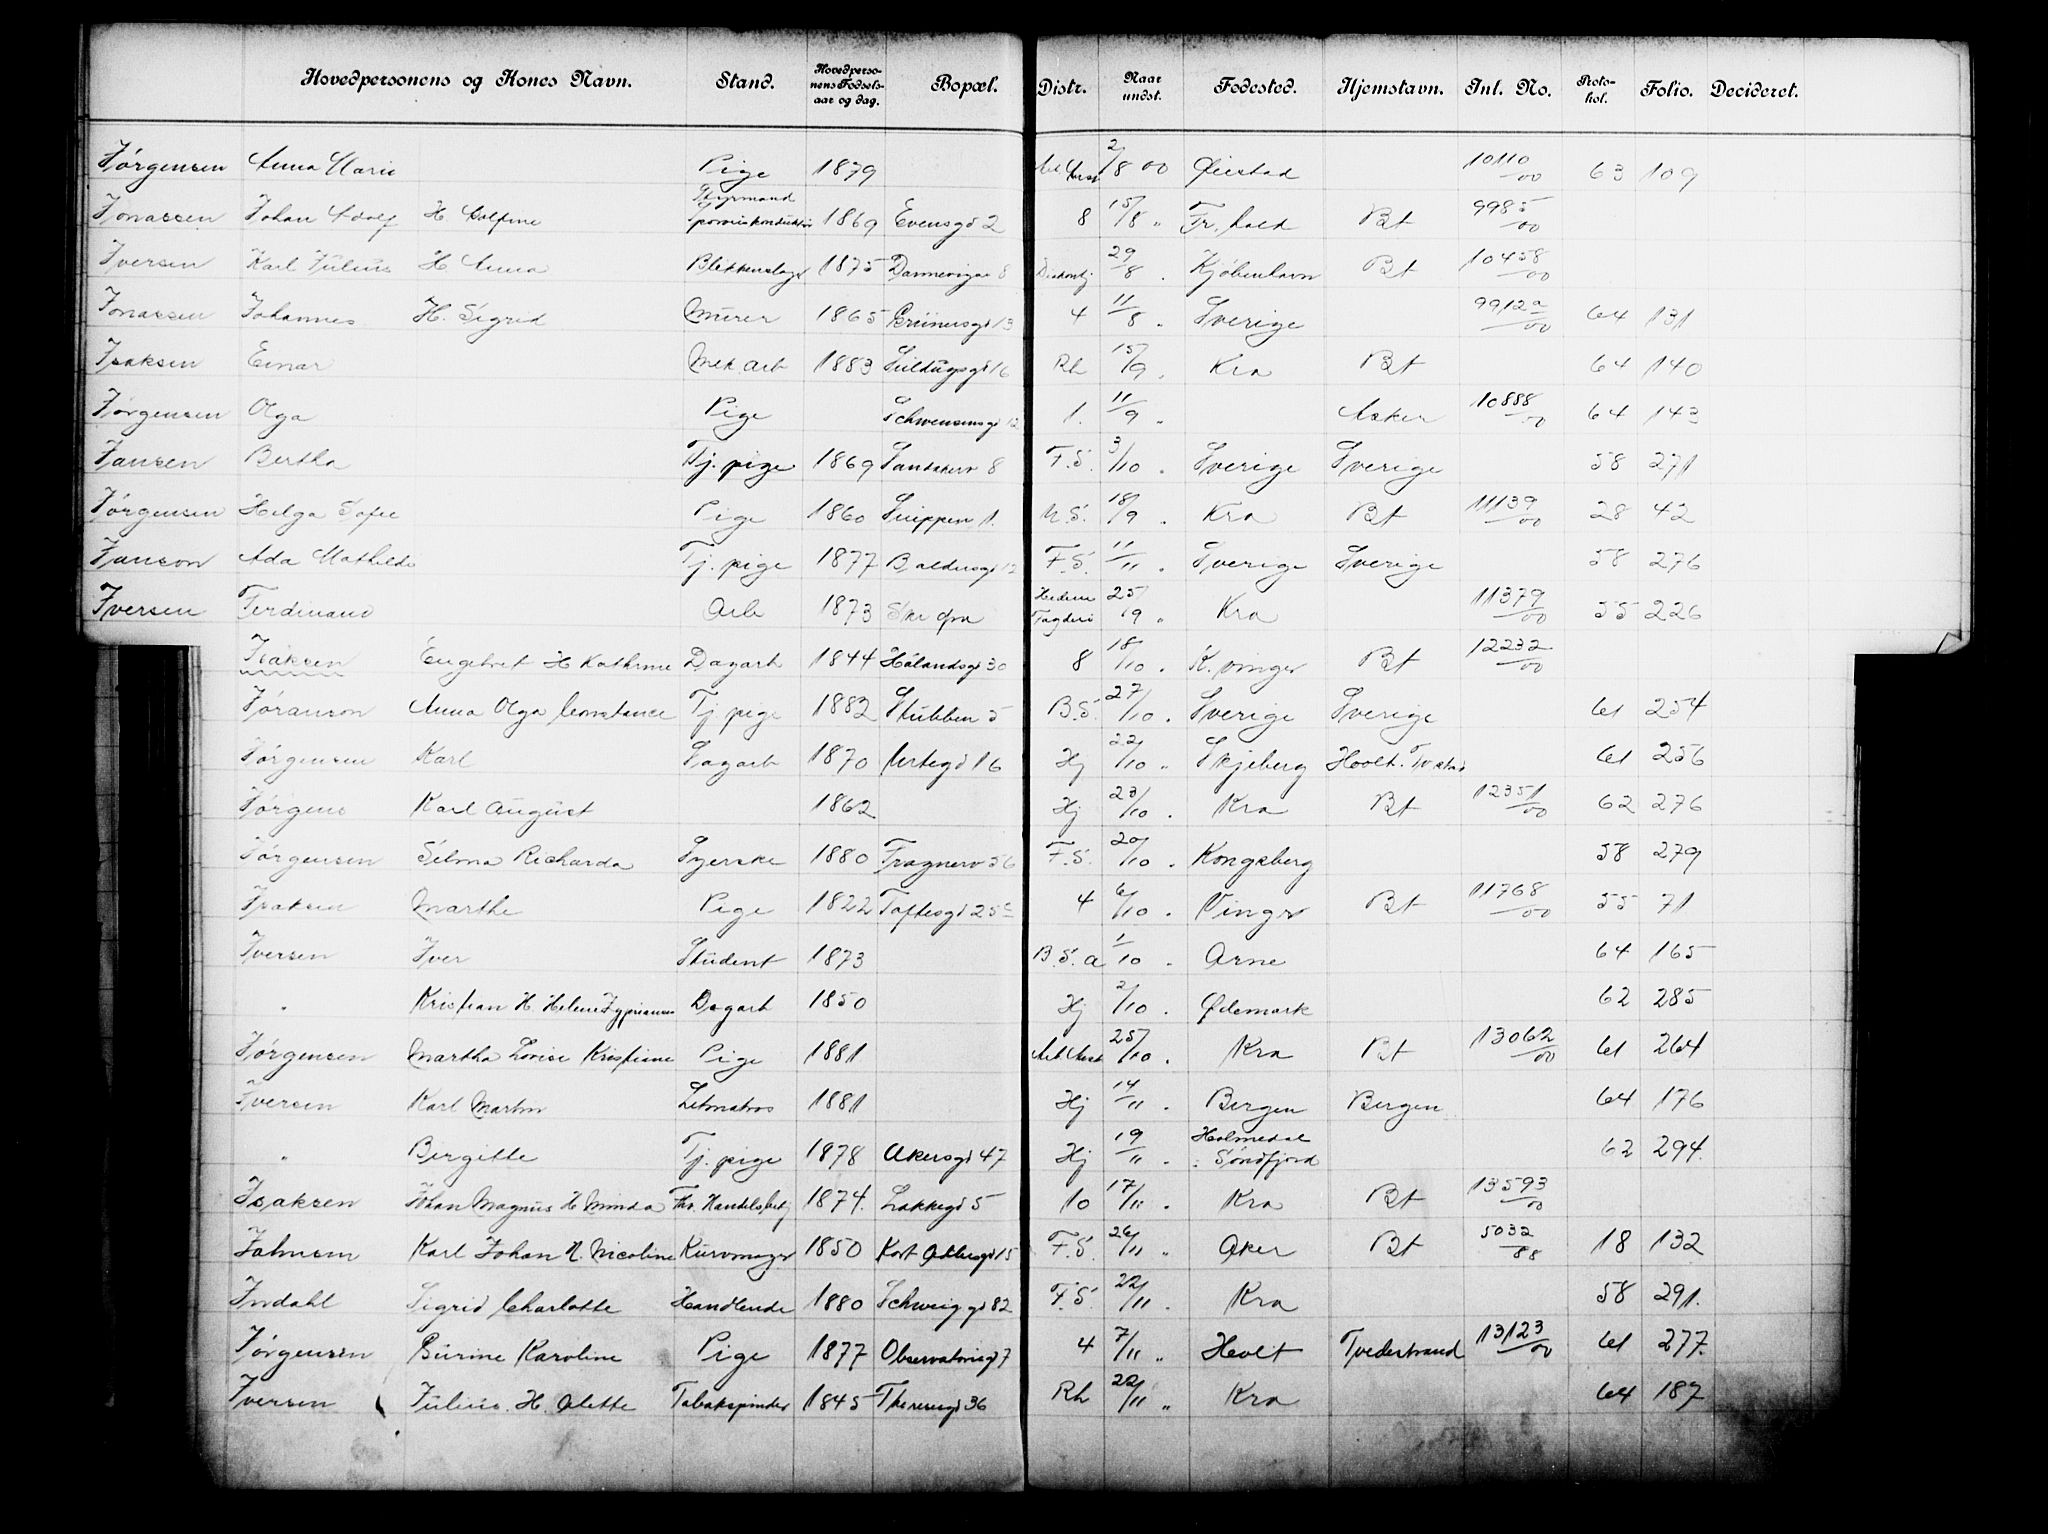 Hovedpersonens og Kones Navn. Stand. Hovedpersonens Fødselsaar og dag. Bopæl. Distr. Naar undst. Fødested. Hjemstavn. Inl. No. Protokol. Folio. Decideret.
Jørgensen Anna Marie Pige 1879 2/8 00 Øiestad 10110/00 63 109
Jonassen Johan Adolf H Dolfine Styrmand Sporveiskonduktør 1869 Evensgd 2 8 15/8 " Fr.hald Bt 9985/00
Iversen Karl Julius H Anna Blikkenslager 1875 Dannevigsv 8 29/8 . Kjøbenhavn Bt 10458/00
Jonassen Johannes H. Sigrid Murer 1865 Grünersgd 13 4 11/8 . Sverige 9912a/00 64 131
Isaksen Einar Mek arb 1883 16 Rh 15/9 . Kra Bt 64 140
Jørgensen Olga Pige Schwensensgd 12 1. 11/9 " Asker 10888/00 64 143
Jansen Bertha Tj. pige 1869 8 F.S. 3/10 . Sverige Sverige 58 271
Jørgensen Helga Sofie Pige 1860 Snippen 1. N.S. 18/9 . Kra Bt 11139/00 28 42
Janson Ada Mathilde Tj. pige 1877 Baldersgd 12 F.S. 11/11 . Sverige Sverige 58 276
Iversen Ferdinand Arb 1873 25/9 " Kra 11379/00 55 226
Isaksen Engebret H Kathrine Dagarb 1844 Hålandsgd 30 8 18/10 . K.vinger Bt 12232/00
Jøranson Anna Olga Constance Tj pige 1882 Stubben 5 B.S. 27/10 . Sverige Sverige 61 254
Jørgensen Karl Sagarb 1870 Urtegd 16 Hj 22/10 " Skjeberg Holt. Tvestad 61 256
Jørgens Karl August 1862 Hj 23/10 . Kra Bt 12351/00 62 276
Jørgensen Selma Richarda Syerske 1880 Frognerv 56 F.S. 20/10 . Kongsberg 58 279
Isaksen Marthe Pige 1822 Toftesgd 25c 4 6/10 . Vinger Bt 11768/00 55 71
Iversen Iver Student 1873 B.S.a 1/10 . Arne 64 165
" Kristian H. Helene Zyprianus Dagarb 1850 Hj 2/10 . Ødemark 62 285
Jørgensen Martha Lovise Kristiane Pige 1881 25/10 . Kra Bt 13062/00 61 264
Iversen Karl Martin Letmatros 1881 Hj 14/11 . Bergen Bergen 64 176
" Birgitte Tj. pige 1878 Akersgd 47 Hj 19/11 . Holmedal i Søndfjord 62 294.
Isaksen Johan Magnus H Minda Fhv. Handelsbetj 1874. Lakkegd 5 10 17/11 . Kra Bt 13593/00
Johnsen Karl Johan H. Nicoline Kurvmager 1850 Kort Adlersgd 15 F.S. 26/11 " Aker Bt 5032/88 18 132
Indahl Sigrid Charlotte Handlende 1880 Schweiggd 82 F.S. 22/11 . Kra 58 291.
Jørgensen Burine Karoline Pige 1877 Observatorigd 7 4 7/11 " Holt Tvedestrand 13123/00 61 277.
Iversen Julius. H. Alette Tobakspinder 1845 Theresesgd 36 Rh 22/11 " Kra 64 187